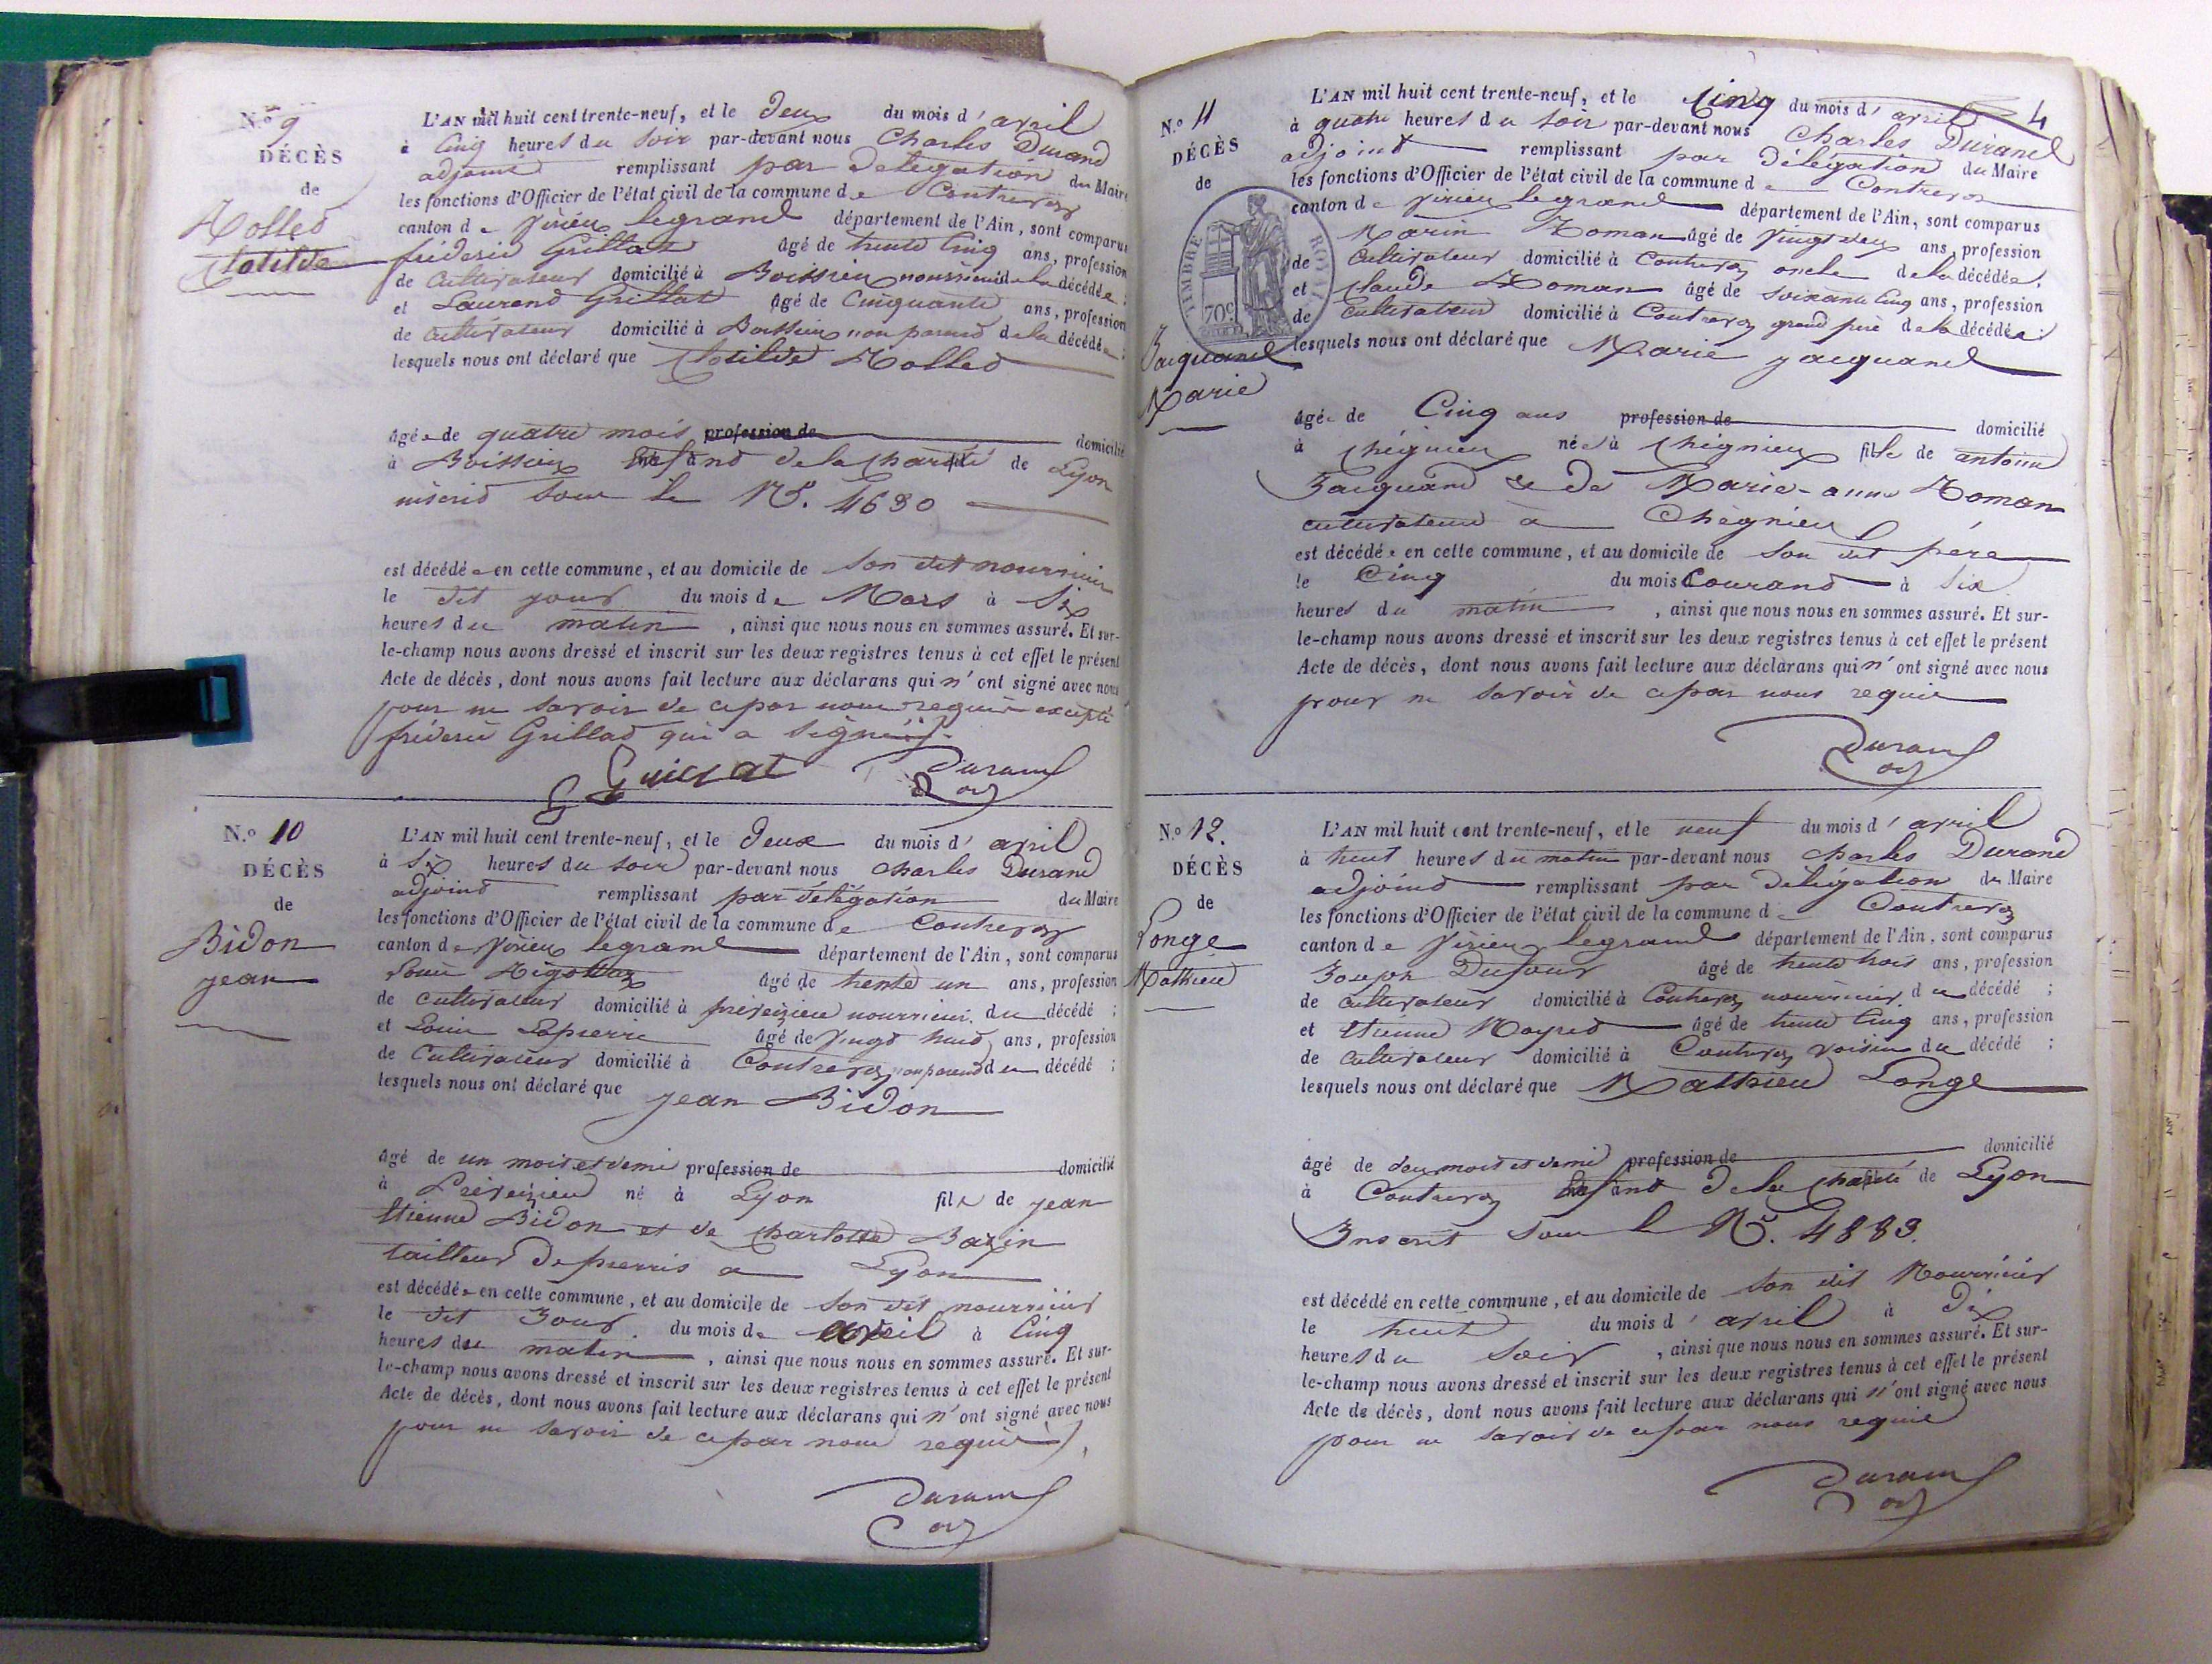 N.º 9
DÉCÈS
de
Rolled
Clotilde
L'AN mil huit cent trente-neuf, et le Deux du mois d'avril
à Cinq heures du Soir par-devant nous Charles Durand
adjoint remplissant par Délégation du Maire
les fonctions d'Officier de l'état civil de la commune de Contrevoz
canton de Virieu legrand département de l'Ain, sont comparus
fréderic Grillat âgé de trente Cinq ans, profession
de Cultivateur domicilié à Boissieu nourricier de la décédée;
et Laurend Grillat âgé de Cinquante ans, profession
de Cultivateur domicilié à Boissieu non parend de la décédée;
lesquels nous ont déclaré que Clotilde Rolled
âgée de quatre mois profession de domicilié
à Boissieu Enfand de la Charité de Lyon
inscrid sous le Nº. 4630
est décédée en cette commune, et au domicile de son dit nourricier
le dit jour du mois de Mars à Six
heures du matin, ainsi que nous nous en sommes assuré. Et sur-
le-champ nous avons dressé et inscrit sur les deux registres tenus à cet effet le présent
Acte de décès, dont nous avons fait lecture aux déclarans qui n'ont signé avec nous
pour ne savoir de ce par nous requis excepté
fréderic Grillad qui a signé
Grillat Durand
adj
N.º 10
DÉCÈS
de
Bidon
jean
L'AN mil huit cent trente-neuf, et le Deux du mois d'avril
à Six heures du soir par-devant nous Charles Durand
adjoind remplissant par délégation du Maire
les fonctions d'Officier de l'état civil de la commune de Contrevoz
canton de Virieu legrand département de l'Ain, sont comparus
Louis Rigollaz âgé de trente un ans, profession
de Cultivateur domicilié à préveizieu nourricier du décédé;
et Louis Lapierre âgé de Vingt huid ans, profession
de Cultivateur domicilié à Contrevoz non parend du décédé;
lesquels nous ont déclaré que jean Bidon
âgé de un mois et demi profession de domicilié
à Préveizieu né à Lyon fils de jean
Etienne Bidon et de Charlotte Bazin
tailleur de pierres à Lyon
est décédé en cette commune, et au domicile de son dit nourricier
le dit Jour du mois de avril à Cinq
heures du matin, ainsi que nous nous en sommes assuré. Et sur-
le-champ nous avons dressé et inscrit sur les deux registres tenus à cet effet le présent
Acte de décès, dont nous avons fait lecture aux déclarans qui n'ont signé avec nous
pour ne savoir de ce par nous requis
Durand
adj
4
N.º 11
DÉCÈS
de
TIMBRE ROYAL
70c
Jacquand
Marie
L'AN mil huit cent trente-neuf, et le Cinq du mois d'avril
à quatre heures du soir par-devant nous Charles Durand
adjoint remplissant par Délégation du Maire
les fonctions d'Officier de l'état civil de la commune de Contrevoz
canton de Virieu legrand département de l'Ain, sont comparus
Marin Roman âgé de Vingt deux ans, profession
de Cultivateur domicilié à Contrevoz oncle de la décédée;
et Claude Roman âgé de soixante Cinq ans, profession
de Cultivateur domicilié à Contrevoz grand père de la décédée;
lesquels nous ont déclaré que Marie jacquand
âgée de Cinq ans profession de domicilié
à Chégnieu née à Chégnieu fille de antoine
Jacquand & de Marie-anne Roman
cultivateurs à Chégnieu
est décédée en cette commune, et au domicile de son dit père
le Cinq du mois Courand à Six
heures du matin, ainsi que nous nous en sommes assuré. Et sur-
le-champ nous avons dressé et inscrit sur les deux registres tenus à cet effet le présent
Acte de décès, dont nous avons fait lecture aux déclarans qui n'ont signé avec nous
pour ne savoir de ce par nous requis
Durand
adj
N.º 12.
DÉCÈS
de
Longe
Mathieu
L'AN mil huit cent trente-neuf, et le neuf du mois d'avril
à huit heures du matin par-devant nous Charles Durand
adjoind remplissant par Délégation du Maire
les fonctions d'Officier de l'état civil de la commune de Contrevoz
canton de Virieu legrand département de l'Ain, sont comparus
Joseph Dufour âgé de trente trois ans, profession
de Cultivateur domicilié à Contrevoz nourricier du décédé;
et Etienne Mayred âgé de trente Cinq ans, profession
de Cultivateur domicilié à Contrevoz voisin du décédé;
lesquels nous ont déclaré que Mathieu Longe
âgé de deux mois et demi profession de domicilié
à Contrevoz Enfand de la Charité de Lyon
Inscrit sous le Nº. 4883.
est décédé en cette commune, et au domicile de son dit Nourricier
le huit du mois d'avril à Dix
heures du Soir, ainsi que nous nous en sommes assuré. Et sur-
le-champ nous avons dressé et inscrit sur les deux registres tenus à cet effet le présent
Acte de décès, dont nous avons fait lecture aux déclarans qui n'ont signé avec nous
pour ne savoir de ce par nous requis
Durand
adj